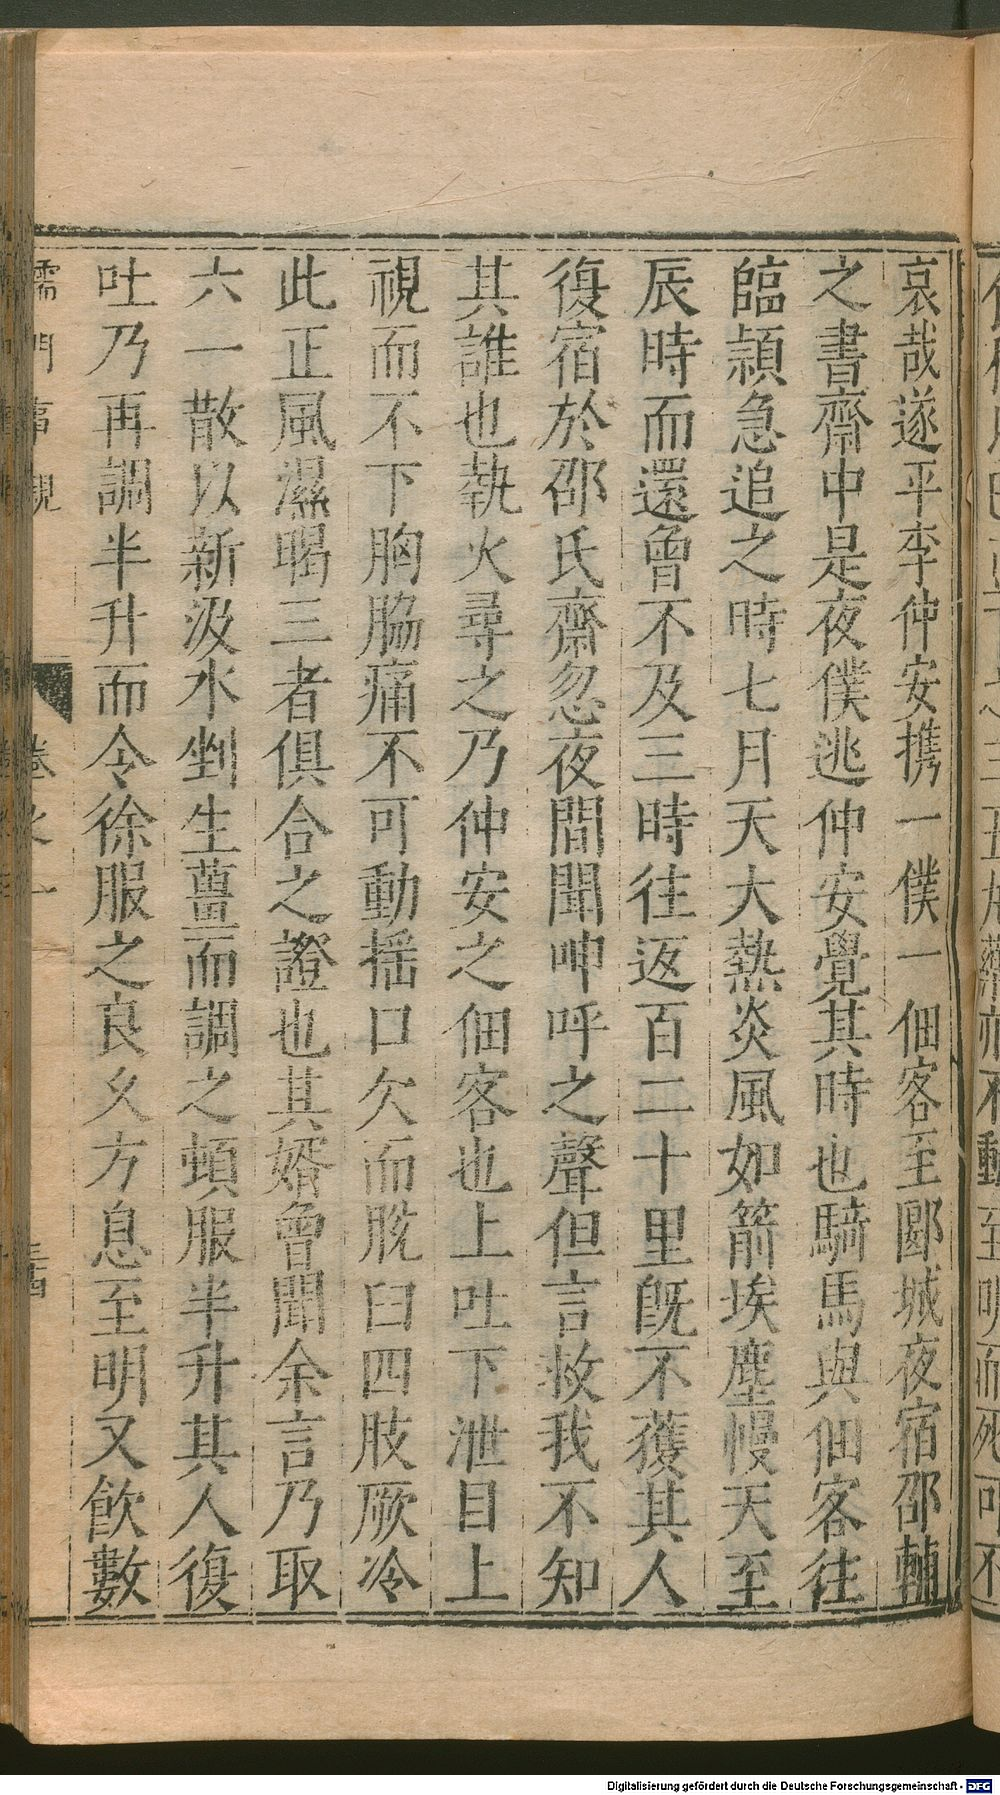 哀哉遂平李仲安攜一僕一佃客至郾城夜宿邵輔
之書齋中是夜僕逃仲安覺其時也騎馬與佃客往
臨潁急追之時七月天大熱炎風如箭埃塵慢天至
辰時而還曾不及三時往返百二十里旣不獲其人
復宿於邵氏齋忽夜間聞呻呼之聲但言救我不知
其誰也執火尋之乃仲安之佃客也上吐下泄目上
視而不下胸脇痛不可動揺口欠而脫臼四肢厥冷
此正風濕暍三者俱合之證也其婿曾聞余言乃取
六一散以新汲水剉生薑而調之頓服半升其人復
吐乃再調半升而令徐服之良久方息至明又飲數
儒門事親 卷之一
Digitalisierung gefördert durch die Deutsche Forschungsgemeinschaft - DFG